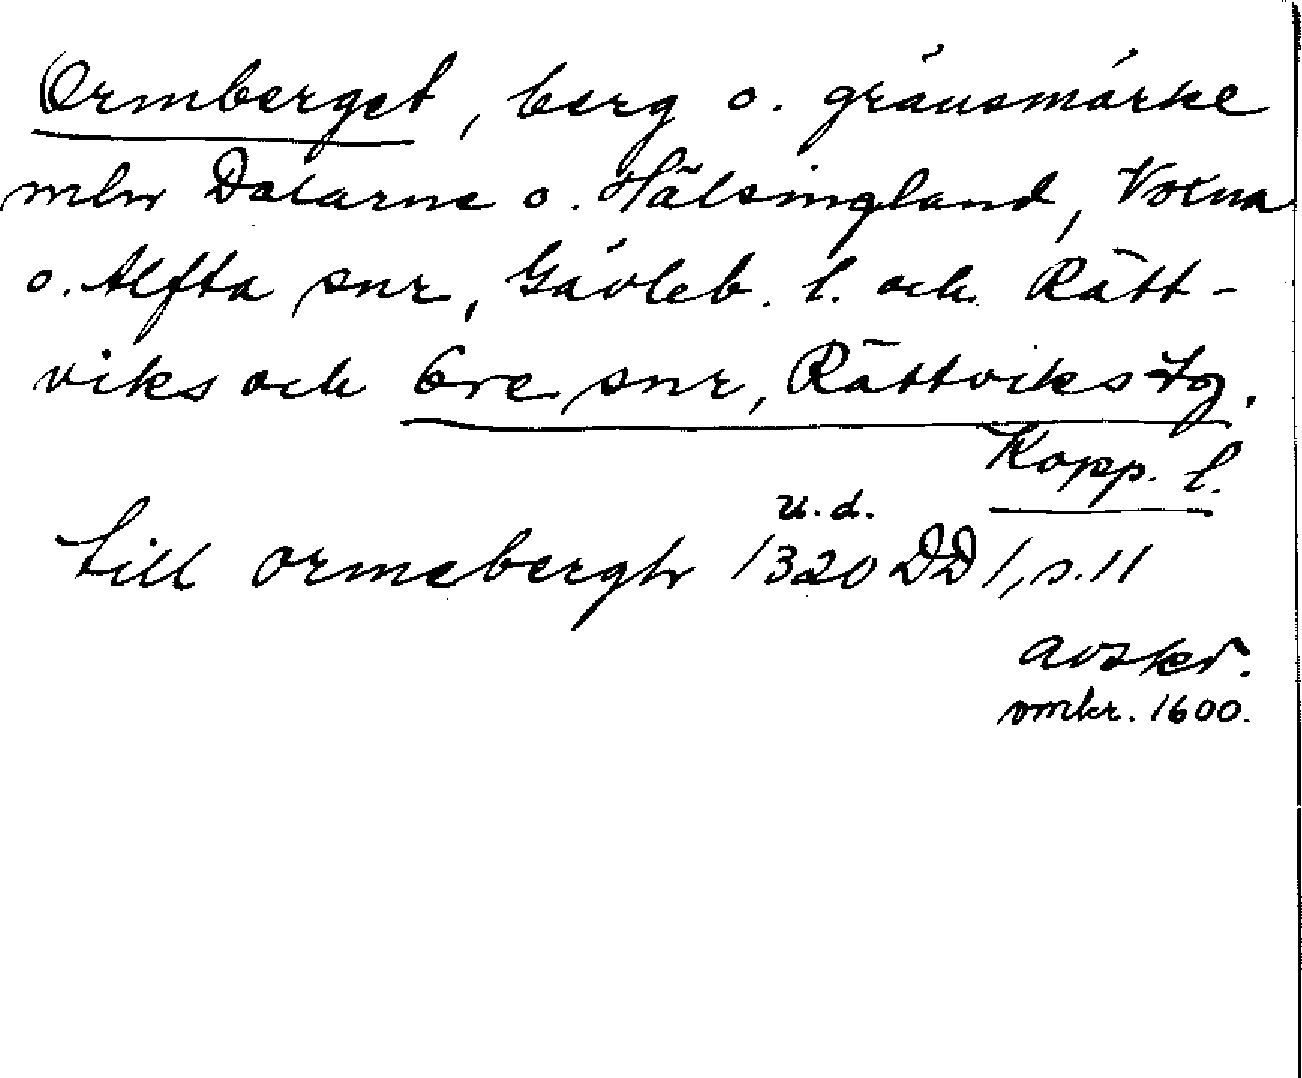 Ormberget, berg o. gränsmärke
mln Dalarne o. Hälsingland, Voxna
o. Alfta snr, Gävleb. l. och Rätt-
viks och Ore snr, Rättviks tg.
Kopp. l.
u.d.
till ormebergh 1320 DD 1, s. 11
avskr.
omkr. 1600.